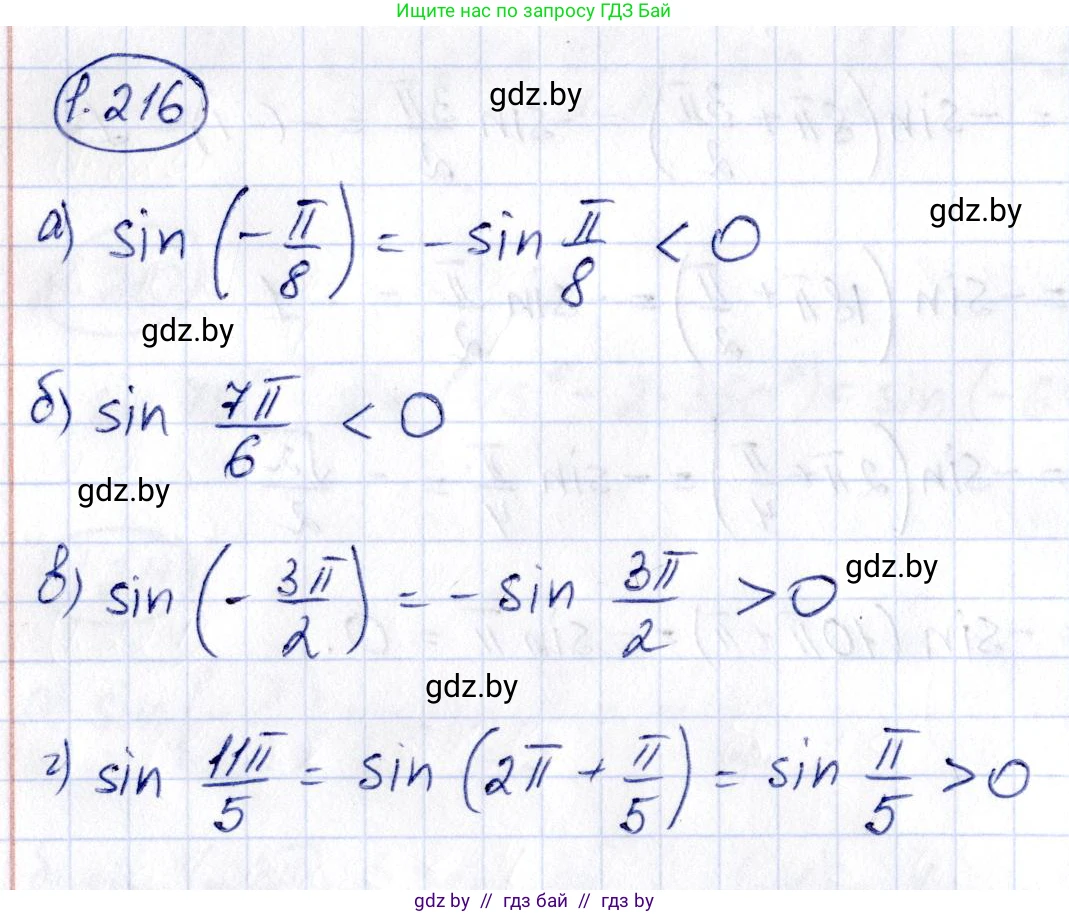 Ищите нас по запросу ГДЗ Бай
1.216
gdz.by
а) sin (-π/8) = -sin π/8 < 0
gdz.by
gdz.by
б) sin 7π/6 < 0
gdz.by
в) sin (-3π/2) = -sin 3π/2 > 0
gdz.by
gdz.by
г) sin 11π/5 = sin (2π + π/5) = sin π/5 > 0
gdz.by // гдз бай // гдз by